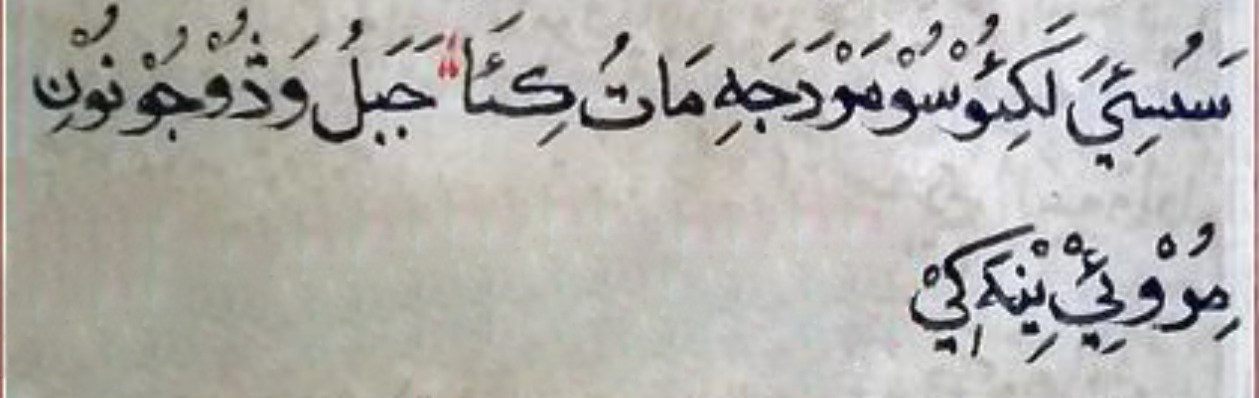 سَسُسِئَيَ لَكِئُوْ سُوْمَوْدَجَهِ مَاتُ كِئَا ؞ جَبَلُ وَدُوْجُوْنُوْنِ
مِوُوْ وِئِيْ يْنِكَهِ كِيْ